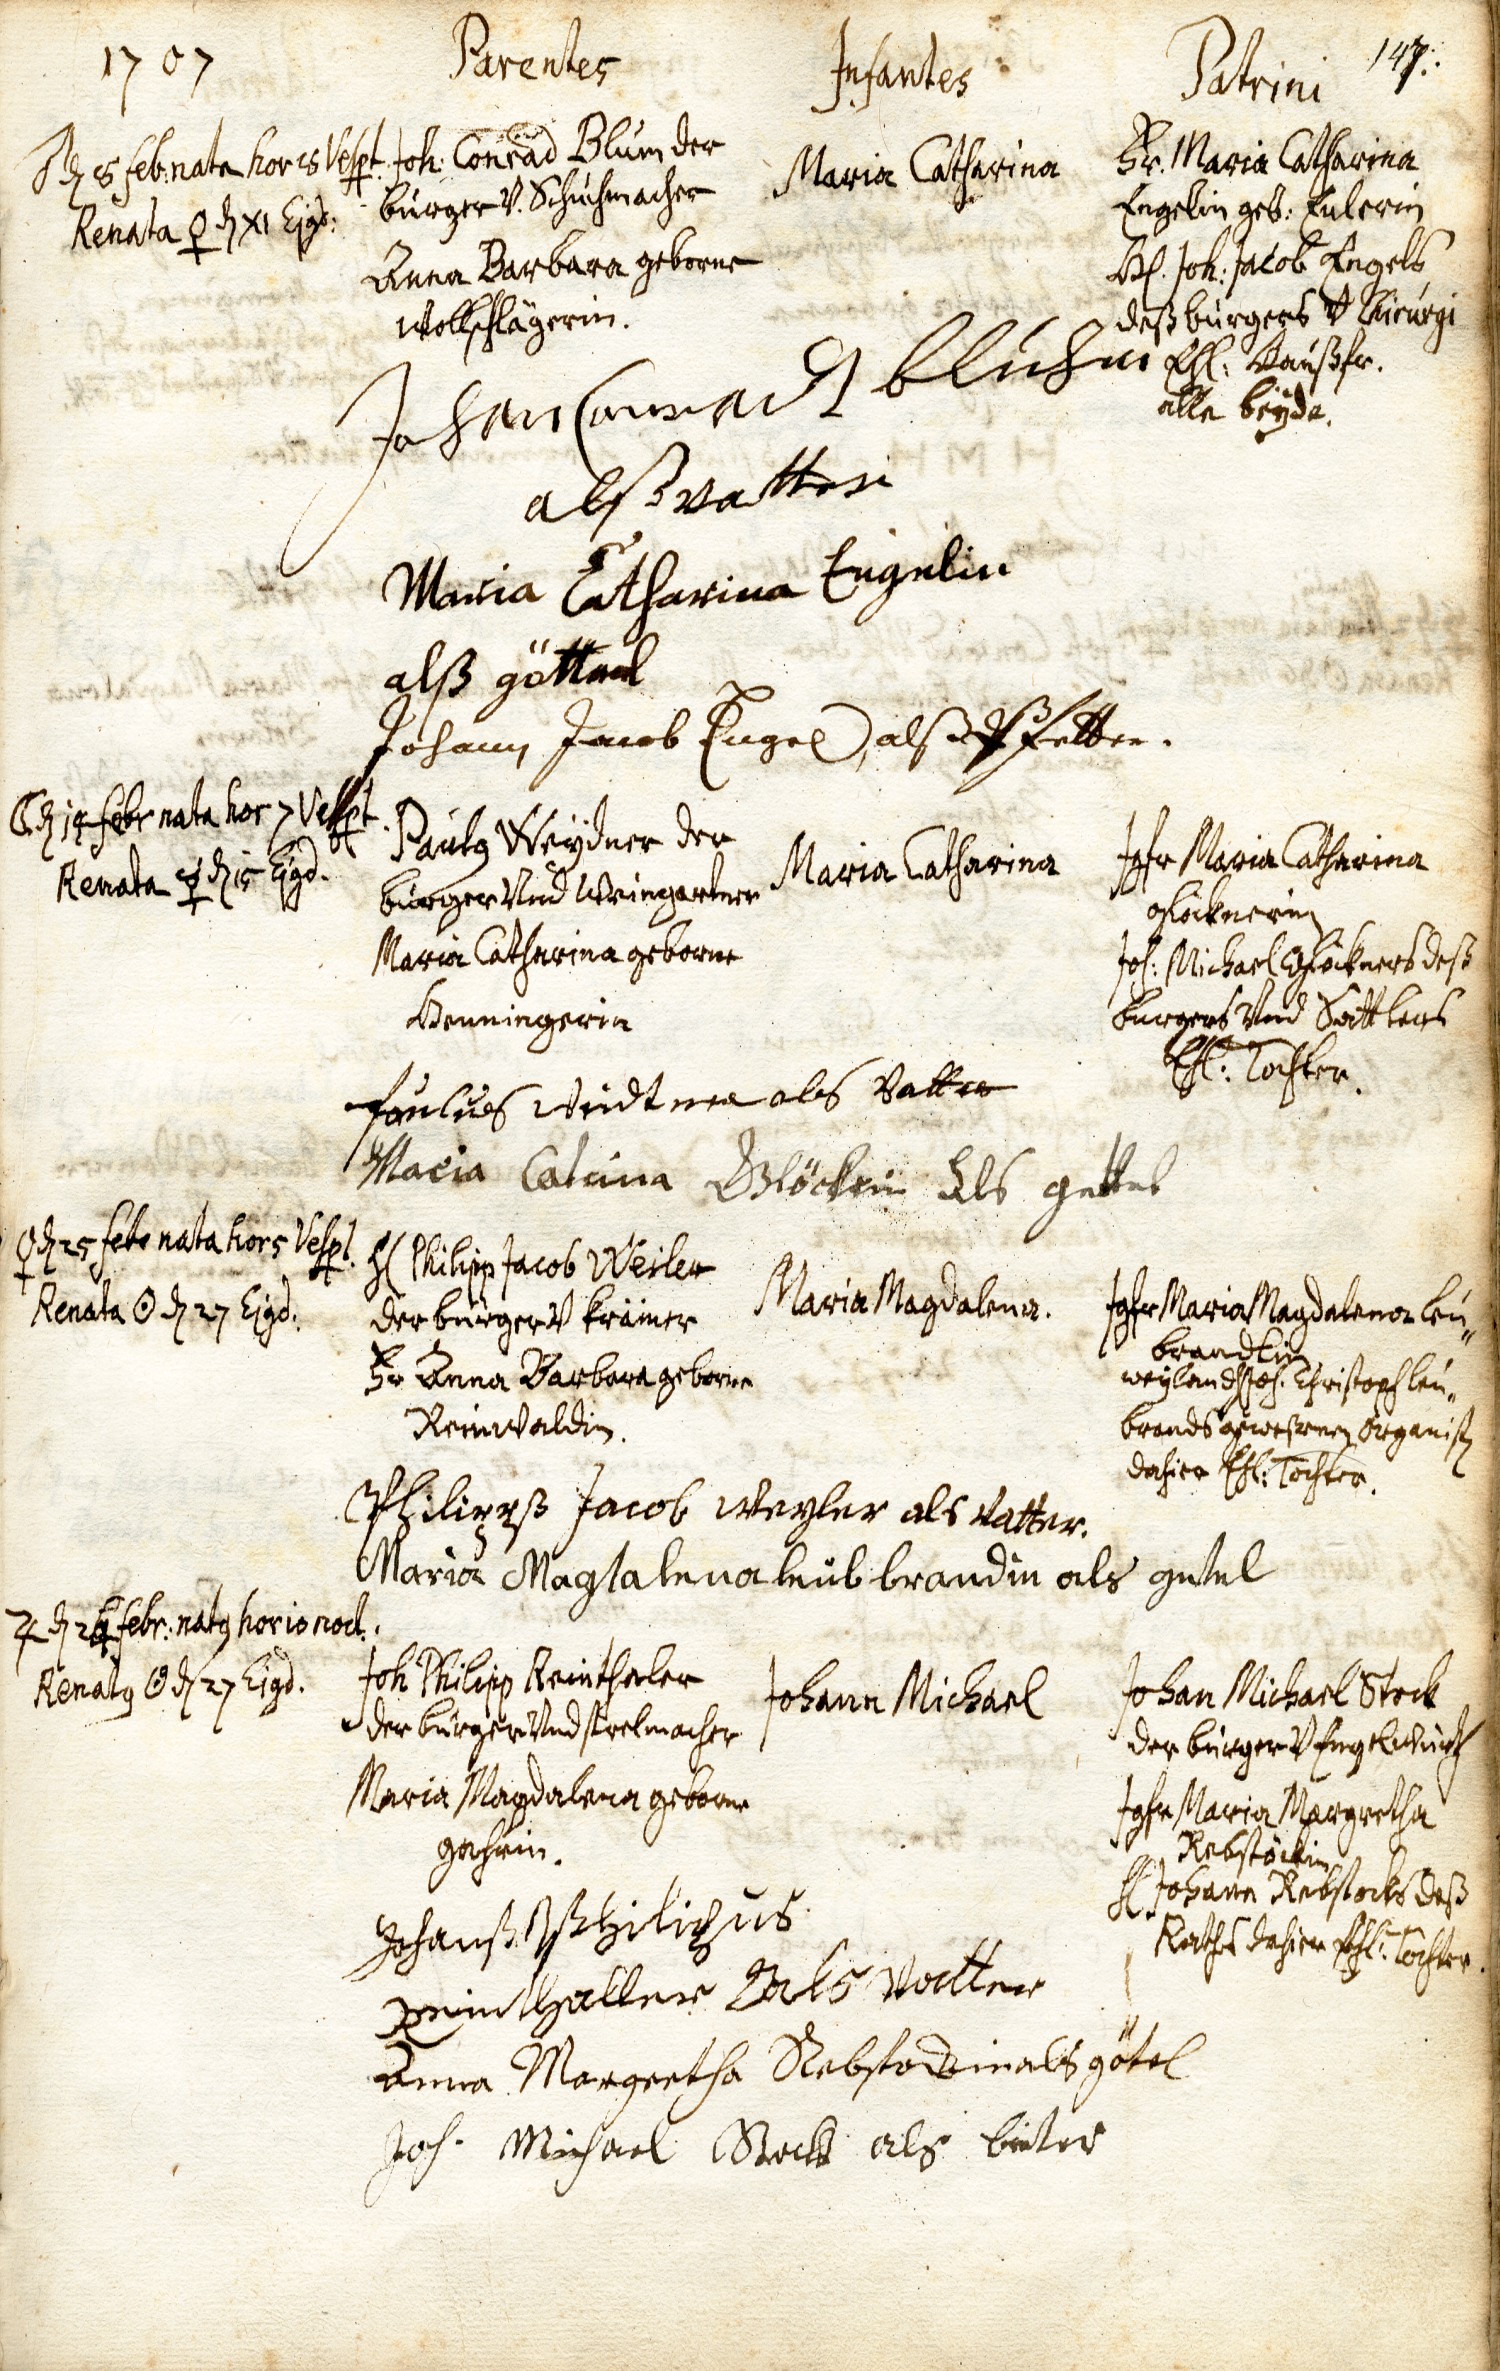 1707
Parentes
Infantes
Patrini
147.
♂ d. 8 feb: nata hor 2 s Vespt.
Renata ♀ d. XI Ejsd:
Joh: Conrad Blum der
burger V. Schuchmacher
Anna Barbara geborne
Wollschlägerin.
Maria Catharina
Fr. Maria Catharina
Engelin geb: Eulerin
H. Joh: Jacob Engels
deß burgers V Chirurgi
Ehl: Haußfr.
alle beyde.
Johan Conradt bluhm
alß vatter
Maria Catharina Engelin
alß göttel
Johann Jacob Engel, alß Pfetter.
☾ d. 14 febr nata hor 7 Vespt.
Renata ♂ d. 15 Ejsd.
Paulg Weydner der
burger Und Weingartner
Maria Catharina geborne
Henningerin
Maria Catharina
Jgfr Maria Catharina
glöcknerin
Joh: Michael Glöckners deß
burgers Und Sattlers
Ehl: Tochter.
paulus als Vatter
Maria Catrina Glöckrin Als gettel
♀ d. 25 febr nata hor 5 Vespt.
Renata ☉ d. 27 Ejsd.
H Philipp Jacob Weiler
der burger V krämer
Fr Anna Barbara geborne
Reinwaldin.
Maria Magdalena.
Jgfr Maria Magdalena leu„
brandtin
weylandt Joh. Christoph leu„
brands gewesenen organist
dahier Ehl: Tochter.
Philipps Jacob Weyler als vatter.
Maria Magtalena leubbrandin als getel
♃ d. 24 febr: natg hor 10 noct.
Renatg ☉ d. 27 Ejsd.
Joh Philipp Reinthaler
der burger Und strelmacher
Maria Magdalena geborne
gohrin.
Johann Michael
Johan Michael Stock
der burger V Engelwirth
Jgfr Maria Margretha
Rebstöckin
H Johann Rebstocks deß
Raths dahier Ehl: Tochter.
Johanß Philippus
reinthaller Als Vatter
Anna Margretha Rebstockin als götel
Joh. Michael Stock als